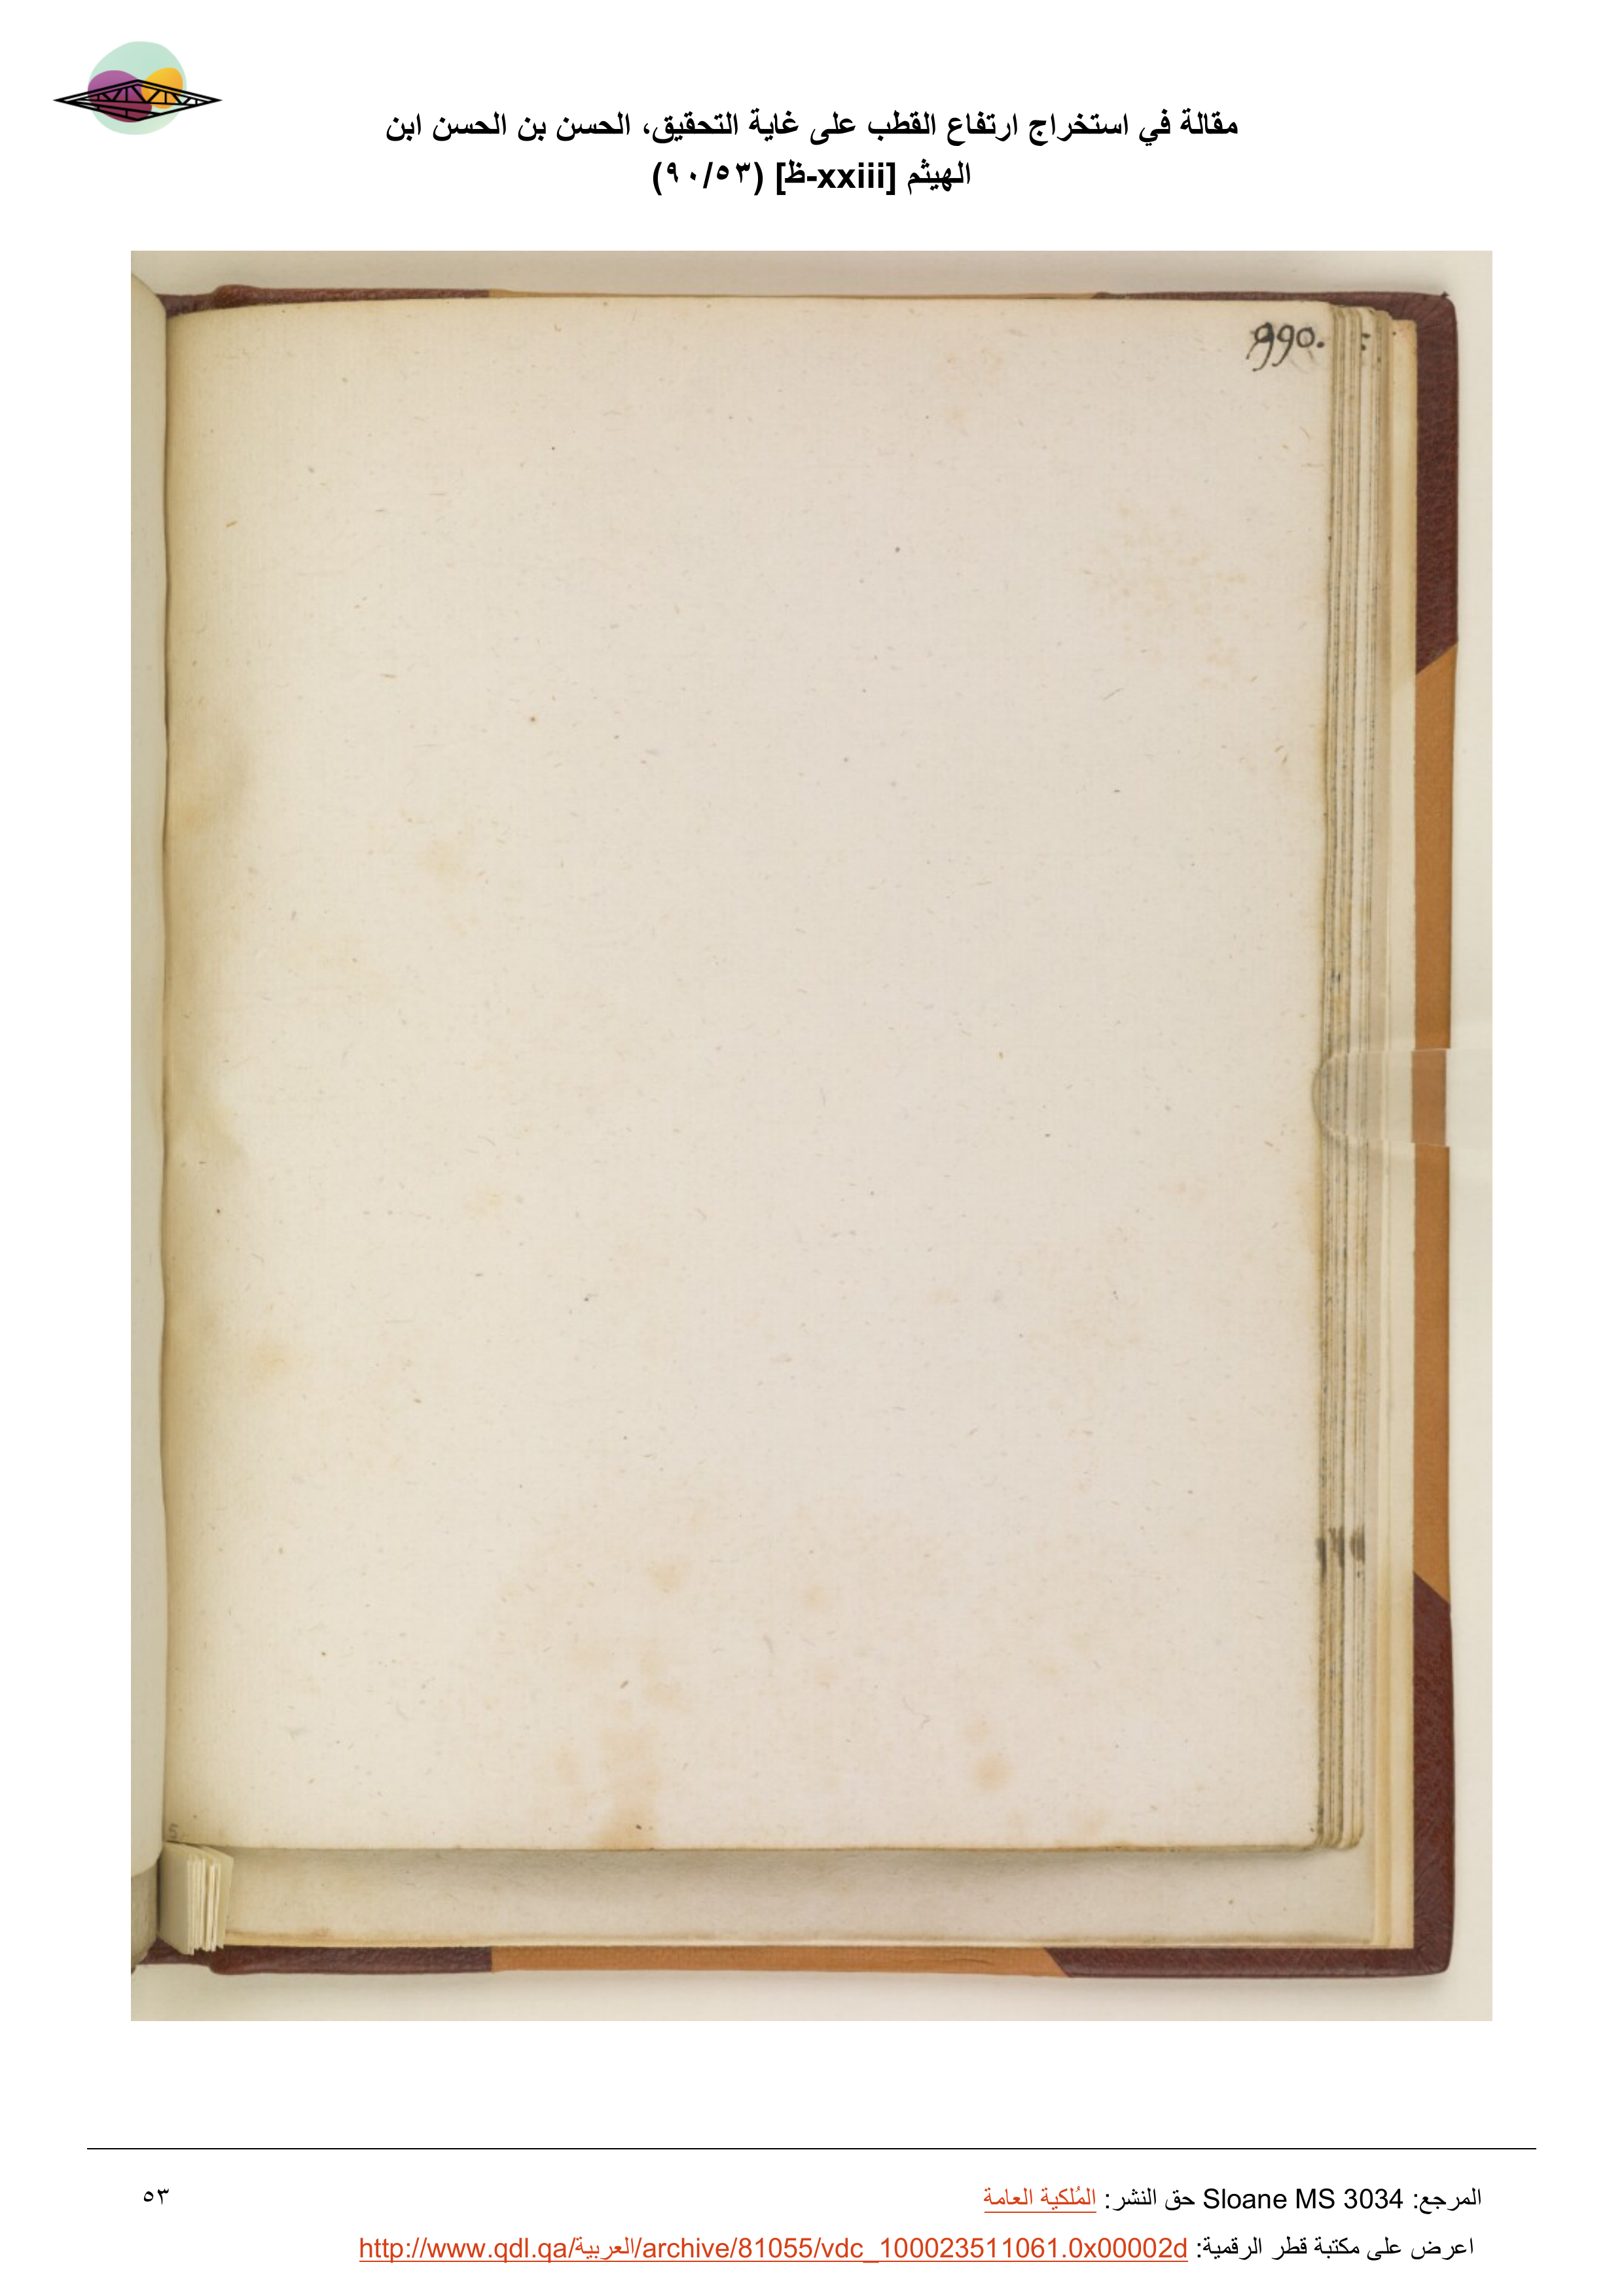 مقالة في استخراج ارتفاع القطب على غاية التحقيق، الحسن بن الحسن ابن
الهيثم [xxiii-ظ] (٩٠/٥٣)
990.
5
المرجع: Sloane MS 3034 حق النشر: المُلكية العامة
٥٣
اعرض على مكتبة قطر الرقمية: http://www.qdl.qa/العربية/archive/81055/vdc_100023511061.0x00002d